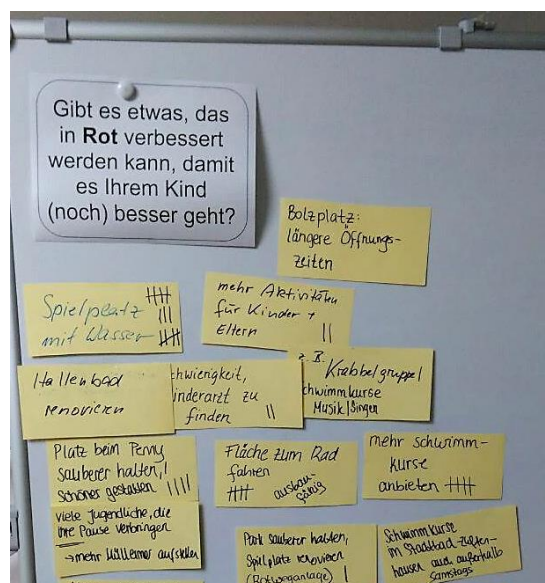 Gibt es etwas, das
in Rot verbessert
werden kann, damit
es Ihrem Kind
(noch) besser geht?
Bolzplatz:
längere Öffnungs-
zeiten
Spielplatz
mit Wasser
mehr Aktivitäten
für Kinder +
Eltern
z.B. Krabbelgruppe
chwimmkurse
Musik/Singen
Hallenbad
renovieren
hwierigkeit,
inderarzt zu
finden
Platz beim Penny
sauberer halten,
schöner gestalten
viele Jugendliche, die
ihre Pause verbringen
→mehr Mülleimer aufstellen
Fläche zum Rad
fahren
ausbau-
fähig
mehr schwimm-
kurse
anbieten
Park sauberer halten,
Spielplatz renovieren
(Rotweganlage)
Schwimmkurse
im Stadtbad Zuffen-
hausen auch außerhalb
samstags